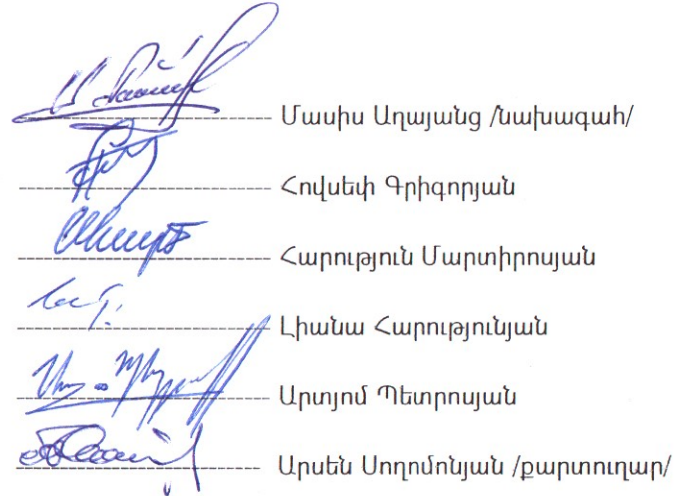 Մասիս Աղայանց /նախագահ/
Հովսեփ Գրիգորյան
Հարություն Մարտիրոսյան
Լիանա Հարությունյան
Արտյոմ Պետրոսյան
Արսեն Սողոմոնյան /քարտուղար/